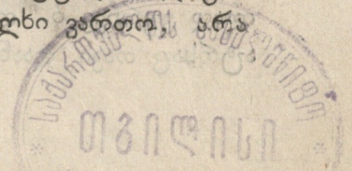 ლხი ვართო, არა
საქართველოს
თბილისი